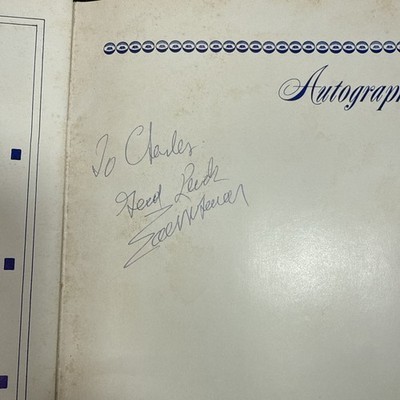 Autograph
To Charles
Good Luck